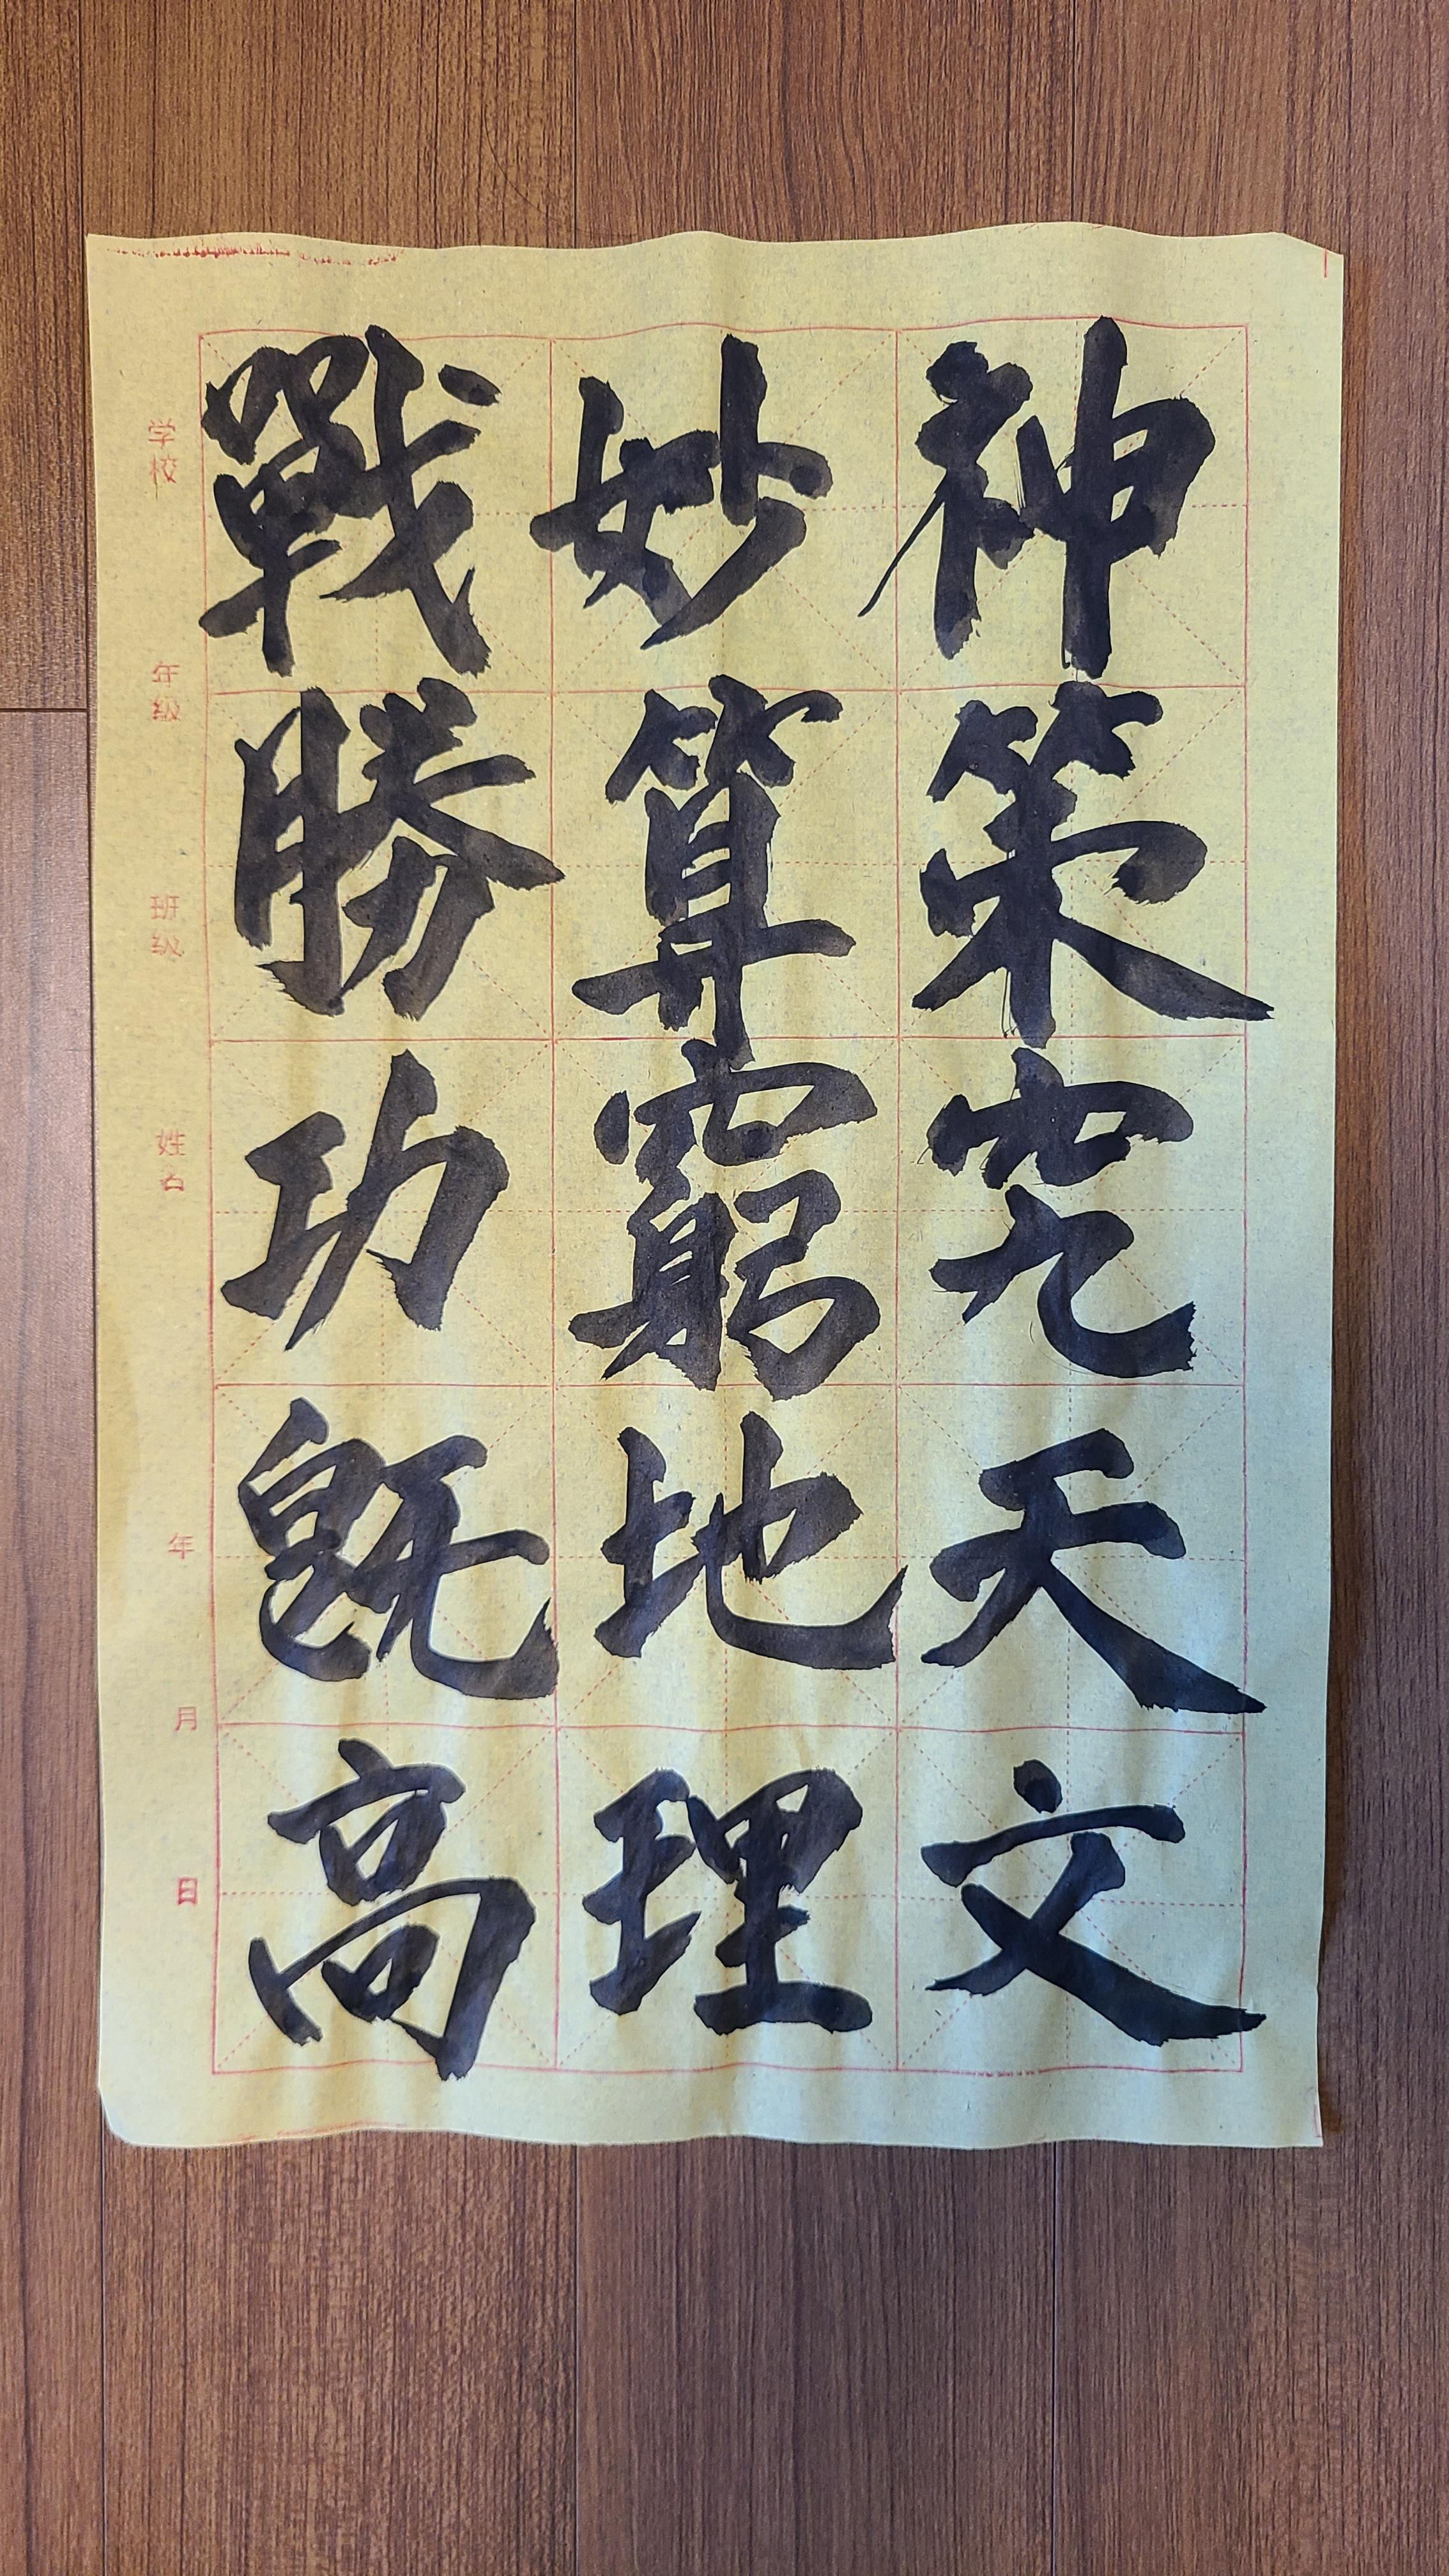 神策究天文
妙算窮地理
戰勝功既高
学校
年級
班級
姓名
年
月
日